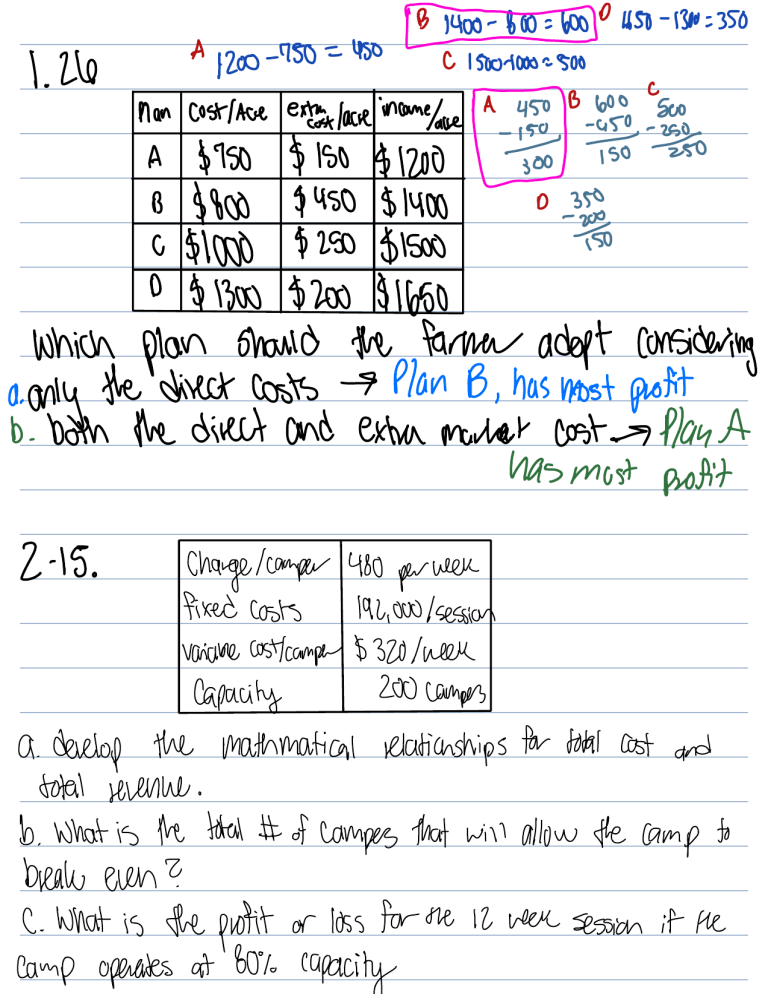 B 1400 - 800 = 600 D 1650 - 1300 = 350
A 1200 - 750 = 450 C 1500-1000 = 500
1.26
Plan Cost/Acre extra cost/acre income/acre
A $750 $150 $1200
B $800 $450 $1400
C $1000 $250 $1500
D $1300 $200 $1650
A 450 B 600 C 500
-150 -450 -250
300 150 250
D 350
-200
150
Which plan should the farmer adopt considering
a. only the direct costs → Plan B, has most profit
b. both the direct and extra market cost → Plan A
has most profit
2-15.
Charge/camper 480 per week
fixed costs 192,000/session
variable cost/camper $320/week
Capacity 200 campers
a. develop the mathmatical relationships for total cost and
total revenue.
b. What is the total # of campes that will allow the camp to
break even?
C. What is the profit or loss for the 12 week session if the
camp operates at 80% capacity